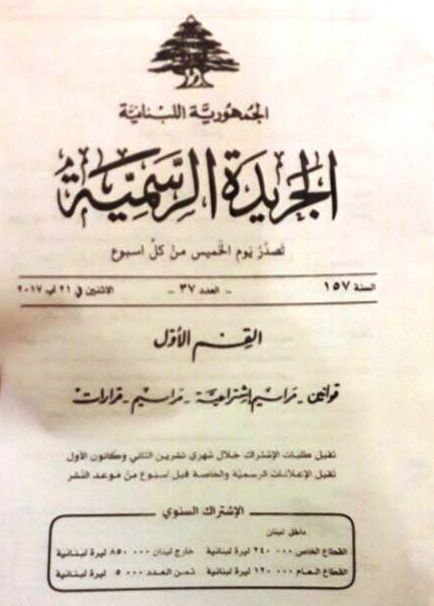 الجمهورية اللبنانية
الجريدة الرسمية
تصدر يوم الخميس من كل اسبوع
السنة ١٥٧ - العدد ٣٧ - الاثنين في ٢١ آب ٢٠١٧
القسم الأول
قوانين - مراسيم إشتراعية - مراسيم - قرارات
تقبل طلبات الإشتراك خلال شهري تشرين الثاني وكانون الأول
تقبل الإعلانات الرسمية والخاصة قبل اسبوع من موعد النشر
الإشتراك السنوي
داخل لبنان
القطاع الخاص ٢٤٠ ٠٠٠ ليرة لبنانية خارج لبنان ٨٥٠ ٠٠٠ ليرة لبنانية
القطاع العام ١٢٠ ٠٠٠ ليرة لبنانية ثمن العدد ٥ ٠٠٠ ليرة لبنانية